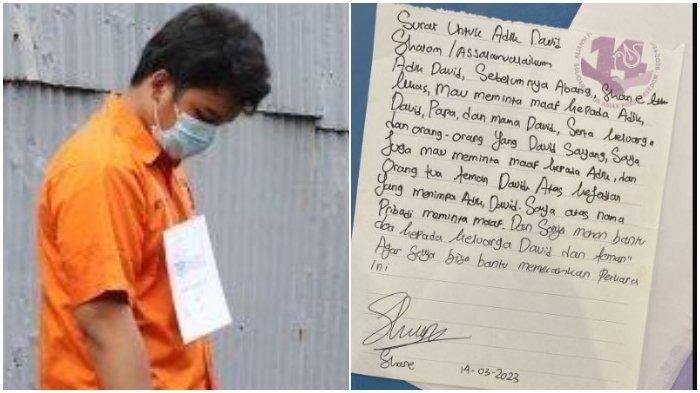 Surat Untuk Adik David
Shalom / Assalamualaikum
Adik David, Sebelumnya Abang, Shane
Lukas, Mau meminta maaf kepada Adik,
David, Papa, dan mama David, Serta keluarga
dan orang-orang Yang David Sayang, Saya
Juga mau meminta maaf kepada Adik, dan
Orang tua teman David. Atas kejadian
Yang menimpa Adik David. Saya atas nama
Pribadi meminta maaf. Dan Saya mohon bantu
doa kepada keluarga David dan teman"
Agar Saya bisa bantu memecahkan Perkara
ini
Shane
14-03-2023